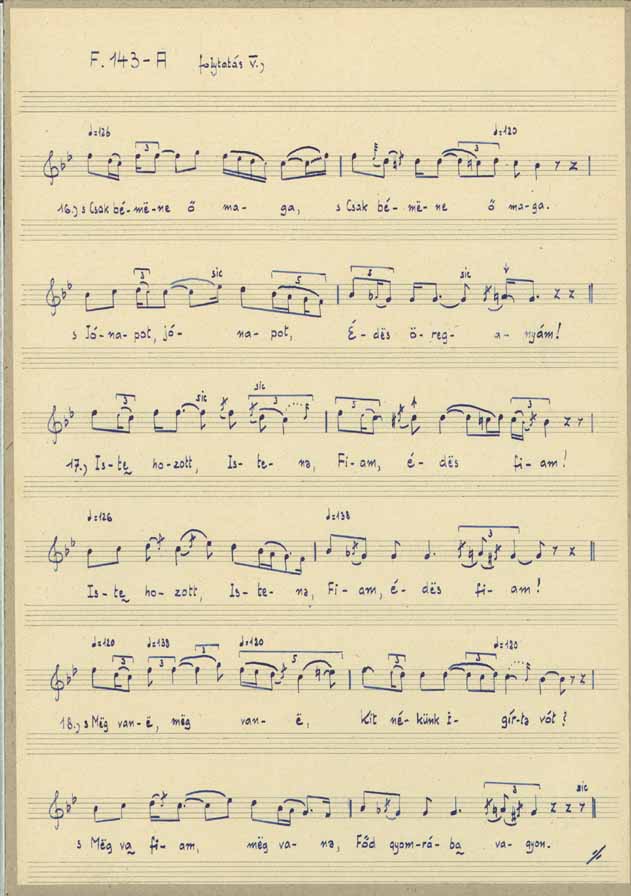 F. 143-A folytatás V.,
♩=126 3 ♩=120 3
16.) s Csak bé-më-ne ő ma-ga, s Csak bé-më-ne ő ma-ga.
3 sic 5 5 sic
s Jó-na-pot, jó-na-pot, É-dës ö-reg-a-nyám!
3 sic sic 3 5 3
17.) Is-te̮ ho-zott, Is-te-nə, Fi-am, é-dës fi-am!
♩=126 ♩=138 3
Is-te̮ ho-zott, Is-te-nə, Fi-am, é-dës fi-am!
♩=120 3 ♩=138 3 ♩=120 5 3 ♩=120 3
18.) s Mëg van-ë, mëg van-ë, Kit né-künk i-gír-tə vót?
3 sic
s Mëg va̮ fi-am, mëg va-nə, Főd gyom-rá-ba̮ va-gyon.